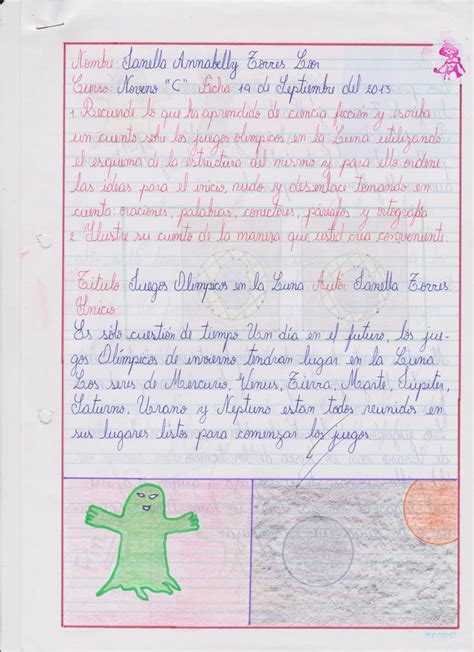 Nombre: Janella Annabelly Torres Loor
Curso: Noveno "C" Fecha 19 de Septiembre del 2013
1. Recuerde lo que ha aprendido de ciencia ficción y escriba
un cuento sobre los juegos olímpicos en la Luna utilizando
el esquema de la estructura del mismo y para ello ordene
las ideas para el inicio, nudo y desenlace tomando en
cuenta: oraciones, palabras, conectores, párrafos y ortografía
2. Ilustre su cuento de la manera que usted crea conveniente
Título Juegos Olímpicos en la Luna Autor Janella Torres.
Inicio
Es sólo cuestión de tiempo. Un día en el futuro, los jue-
gos Olímpicos de invierno tendran lugar en la Luna
Los seres de Mercurio, Venus, Tierra, Marte, Júpiter,
Saturno, Urano y Neptuno estan todos reunidos en
sus lugares listos para comenzar los juegos